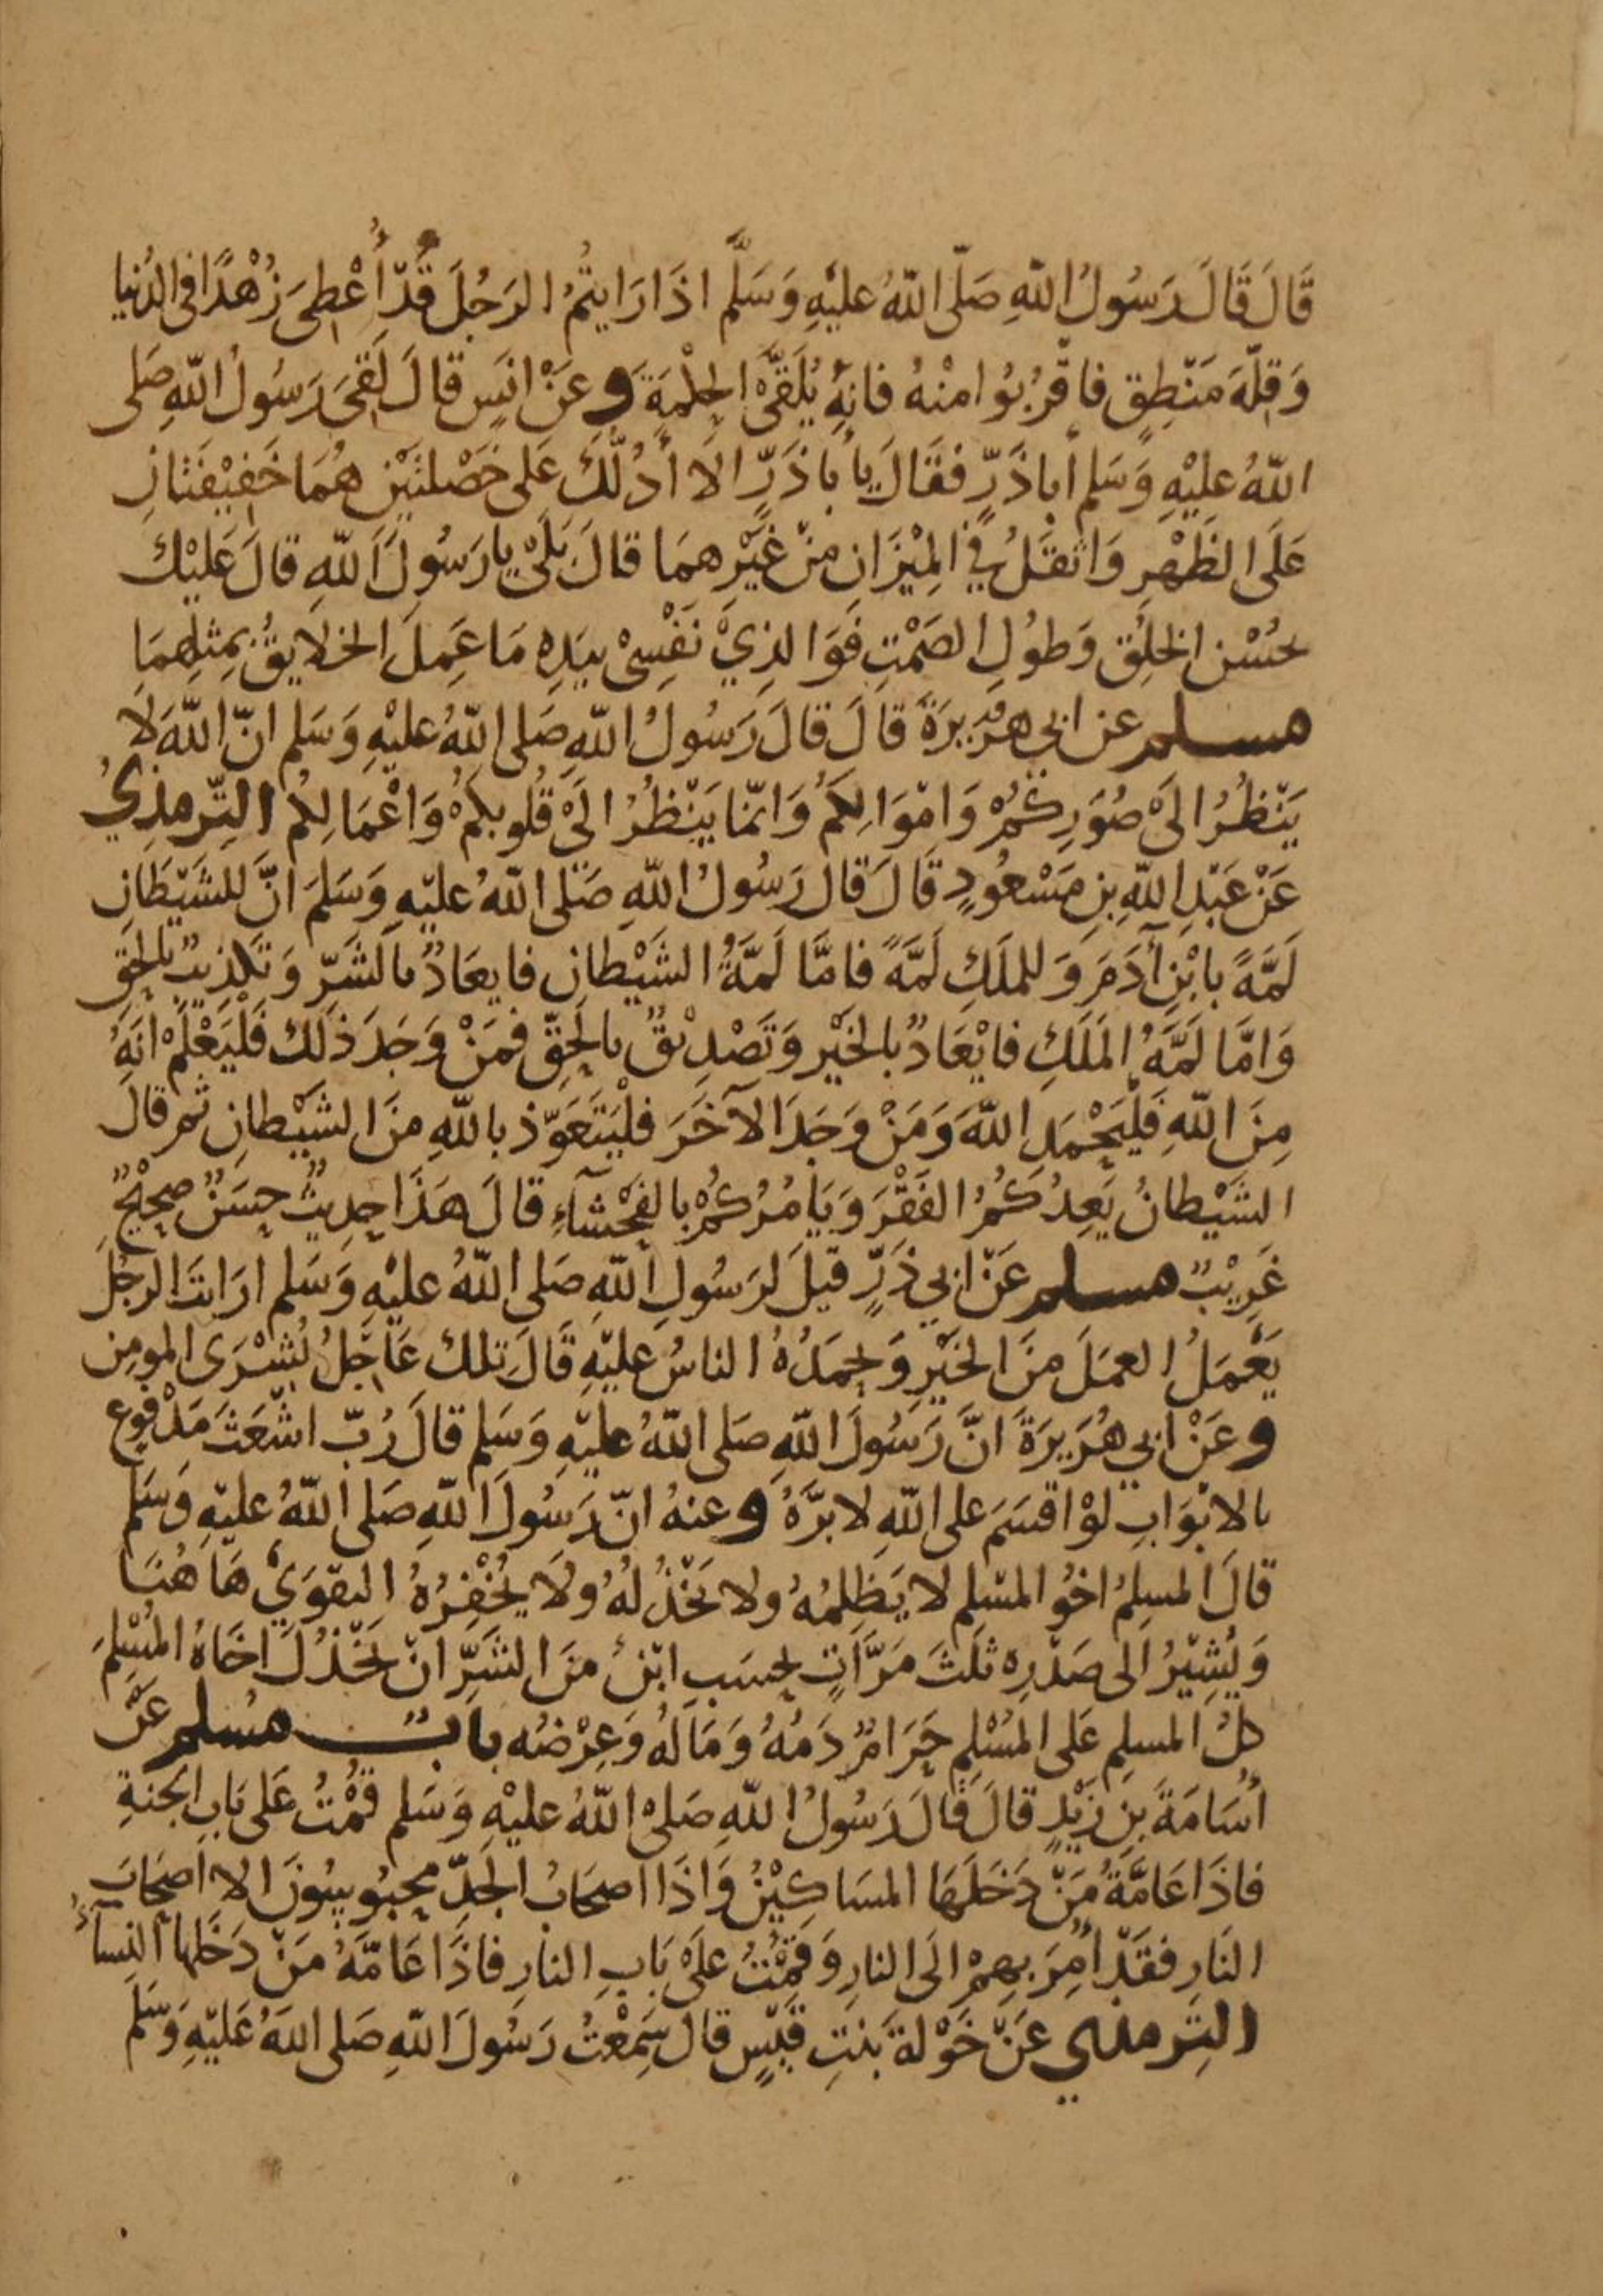 قَالَ قَالَ رَسُولُ اللّهِ صَلّى اللّهُ عليْهِ وَسَلَّم اذَا رَايتُمُ الرَجُلَ قَدْ أُعْطِيَ زُهْدًا فى الدُنيا
وَقِلّةَ مَنْطِقٍ فاقْرُبُوا مِنْهُ فانِهُ يُلَقَّىْ الحِكْمَةَ وعَنْ انَسٍ قالَ لَقِىَ رَسُولُ اللّهِ صَلى
اللّهُ عليْهِ وَسَلم أباذَرٍّ فقَالَ يا أباذَرٍّ الا أدُلّكَ عَلى خَصْلتَيْنِ هُمَا خَفِيْفَتانِ
عَلَى الظَهْرِ وَاثقَلُ فِي المِيْزَانِ مِنْ غَيْرِهمَا قالَ بَلَىْ يا رَسُولَ اللّهِ قالَ عَليْكَ
بحُسْنِ الخلُقِ وَطُولِ الصَمْتِ فَوَالذِيْ نَفْسِىْ بيَدِهِ مَا عَمِلَ الخلايقُ بِمِثلِهمَا
مسلم عن ابي هُرَيرَةَ قالَ قالَ رَسُولُ اللّهِ صَلى اللّهُ عليْهِ وَسَلم انّ اللّهَ لا
يَنْظُرُ الَىْ صُوَرِكُمْ وَامْوَالِكمْ وَانّمَا يَنْظُرُ الَىْ قُلوبكمْ وَاعْمَالِكُم التِّرمِذِيُ
عَنْ عَبْدِ اللّهِ بنِ مَسْعُودٍ قَالَ قالَ رَسُولُ اللّهِ صَلى اللّهُ عليْهِ وَسَلمَ انَّ للشَيْطانِ
لَمَّةً بابْنِ آدَمَ وَللملَكِ لَمَّةً فامَّا لَمَّةُ الشَيْطانِ فايعَادٌ بالشَرِّ وَتكذِيبٌ بالحَقِ
وَامَّا لَمَّةُ المَلَكِ فايْعَادٌ بالخَيْرِ وَتَصْدِيْقٌ بالحَقِّ فمَنْ وَجَدَ ذَلكَ فَلْيَعْلَمْ انَهُ
مِنَ اللّهِ فَلْيَحْمَدِ اللّهَ وَمَنْ وَجَدَ الآخَرَ فلْيَتَعَوّذ باللّهِ مِنَ الشَيْطانِ ثم قالَ
الشَيْطانُ يَعِدُكُمُ الفَقْرَ وَيَامُرُكُمْ بالفَحْشآءِ قالَ هَذَا حَدِيثٌ حسَنٌ صحِيْحٌ
غَرِيْبٌ مسلم عَنْ ابي ذَرٍّ قيلَ لرَسُولِ اللّهِ صَلى اللّهُ عليْهِ وَسَلم ارَايتَ الرجُلَ
يَعْمَلُ العمَلَ مِنَ الخَيْرِ وَيحمَدُهُ الناسُ عليْهِ قَالَ تِلكَ عَاجِلُ بُشْرَى المومِنِ
وعَنْ ابي هُرَيرَةَ انَّ رَسُولَ اللّهِ صَلى اللّهُ عليْهِ وَسَلم قالَ رُبّ اشْعَثَ مَدْفُوعٍ
بالابْوَابِ لَوْ اقسَمَ على اللّهِ لابَرَّهُ وعنهُ انّ رَسُولَ اللّهِ صَلى اللّهُ عليْهِ وَسَلم
قالَ المسلِمُ اخُو المسْلِمِ لا يَظلِمُهُ ولا يَخْذُلُهُ وَلا يُخْفِرُهُ التقوَىْ هَا هُنَا
وَيُشِيْرُ الى صَدْرِهِ ثلَثَ مَرَّاتٍ بحسَبِ ابْنِ مِنَ الشَرِّ انْ يَخْذُلَ اخَاهُ المُسْلمَ
كلُ المسلِمِ عَلى المُسْلِمِ حَرَامٌ دَمُهُ وَمَالُهُ وَعِرْضُه بابٌ مسْلم عَنْ
أُسَامَةَ بنِ زَيْدٍ قالَ قَالَ رَسُولُ اللّهِ صَلىْ اللّهُ عليْهِ وَسَلم قُمْتُ عَلى بَابِ الجنةِ
فاذَا عَامَّةُ مَنْ دَخَلَهَا المسَاكِيْنُ وَاذَا اصحَابُ الجَدِّ محبُوسُونَ الا اصحَابَ
النَارِ فقَدْ أُمِرَ بِهِمْ الَى النارِ وَقُمْتُ عَلَىْ بَابِ النارِ فاذَا عَامَّةُ مَنْ دَخَلها النِسآءُ
التِرمذي عَنْ خَوْلةَ بَنتِ قَيْسٍ قالَ سَمِعْتُ رَسُولَ اللّهِ صَلى اللّهُ عَليْهِ وَسَلّم